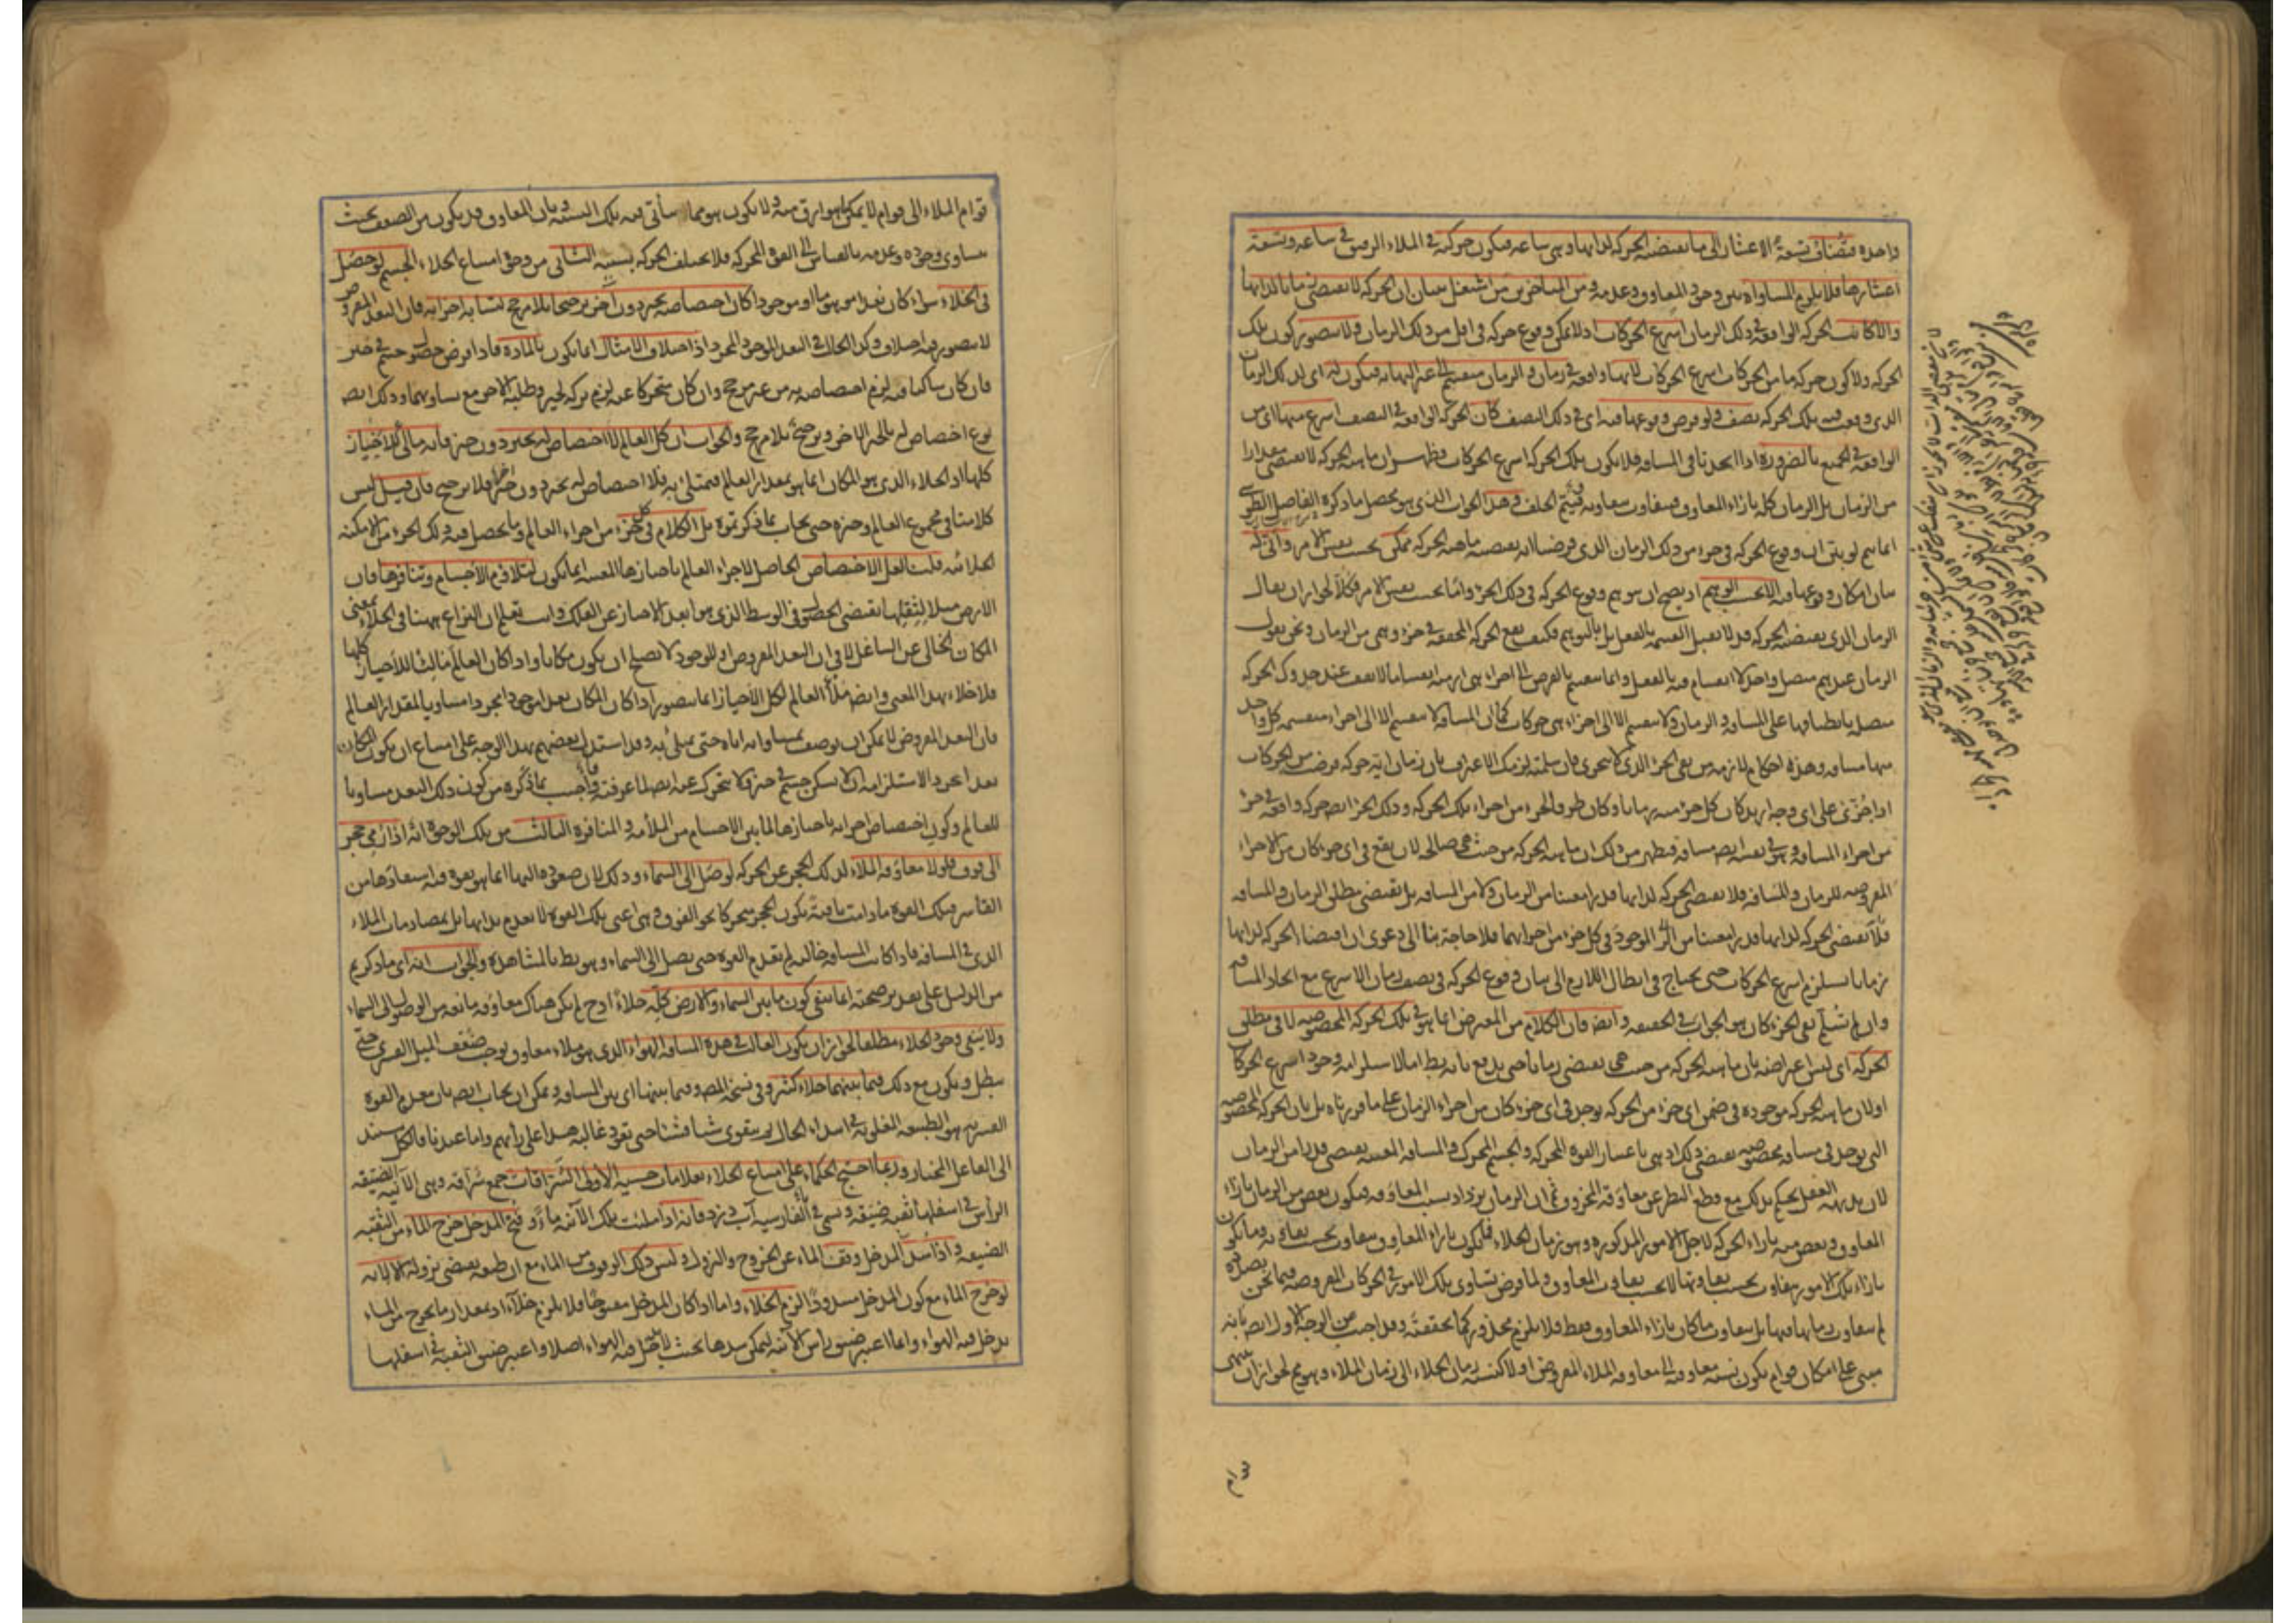 واحدة وتسعة أعشار إلى ما يقتضيه الحركة لذاتها وهي ساعة فيكون حركته في الملاء الرقيق في ساعة وتسعة
أعشارها فلا يلزم المساواة بين وجود المعاوق وعدمه ومن المتأخرين من اشتغل ببيان أن الحركة لا تقتضي زمانا لذاتها
وإلا كانت الحركة الواقعة في ذلك الزمان أسرع الحركات إذ لا يمكن وقوع حركة في أقل من ذلك الزمان ولا يتصور كون تلك
الحركة ولا كون حركة ما من الحركات أسرع الحركات لأنها واقعة في زمان والزمان منقسم إلى غير النهاية فيكون له أي لذلك الزمان
الذي وقعت فيه تلك الحركة نصف ولو فرض وقوعها فيه أي في ذلك النصف كان الحركة الواقعة في النصف أسرع منها أي من
الواقعة في الجميع بالضرورة إذا اتحدتا في المسافة فلا يكون تلك الحركة أسرع الحركات فظهر أن ماهية الحركة لا تقتضي مقدارا
من الزمان بل الزمان كله بإزاء المعاوق فيتفاوت بتفاوته فيتم الخلف وهذا الجواب الذي هو محصل ما ذكره الفاضل الطوسي
إنما يتم لو بين أن وقوع الحركة في جزء من ذلك الزمان الذي فرضنا أنه يقتضيه ماهية الحركة ممكن بحسب نفس الأمر وأنى له
بيان إمكان وقوعها فيه إلا بحسب التوهم إذ يصح أن يتوهم وقوع الحركة في ذلك الجزء وأما بحسب نفس الأمر فكلا لجواز أن يقال
الزمان الذي يقتضيه الحركة قد لا يقبل القسمة بالفعل بل بالتوهم فكيف يقع الحركة المحققة في جزء وهمي من الزمان ونحن نقول
الزمان عندهم متصل واحد لا انقسام فيه بالفعل وإنما ينقسم بالفرض إلى أجزاء هي أزمنة انقساما لا يقف عند حد وكذا الحركة
متصلة بانطباقها على المسافة والزمان ولا تنقسم إلا إلى أجزاء هي حركات كما أن المسافة لا تنقسم إلا إلى أجزاء منقسمة كل واحد
منها مسافة وهذه أحكام لازمة من نفي الجزء الذي لا يتجزى فإن سلمته لزمك الاعتراف بأن زمان أية حركة فرضت من الحركات
إذا جزئ على أي وجه أريد كان كل جزء منه زمانا وكان ظرفا لجزء من أجزاء تلك الحركة وذلك الجزء أيضا حركة واقعة في جزء
من أجزاء المسافة وهو في نفسه أيضا مسافة فظهر من ذلك أن ماهية الحركة من حيث هي صالحة لأن يقع في أي جزء كان من الأجزاء
المفروضة للزمان والمسافة فلا تقتضي الحركة لذاتها قدرا معينا من الزمان ولا من المسافة بل تقتضي مطلق الزمان والمسافة
فلا تقتضي الحركة لذاتها قدرا معينا من
زمانا يستلزم أسرع الحركات حتى يحتاج في إبطال اللازم إلى بيان وقوع الحركة في نصف زمان الأسرع مع اتحاد المسافة
وإن لم تسلم نفي الجزء كان هو الجواب في الحقيقة وأيضا فإن الكلام من المعترض إنما هو في تلك الحركة المخصوصة لا في مطلق
الحركة أي ليس اعتراضه بأن ماهية الحركة من حيث هي تقتضي زمانا حتى يدفع بأنه باطل إما لاستلزامه وجود أسرع الحركات
أو لأن ماهية الحركة موجودة في ضمن أي جزء من الحركة يوجد في أي جزء كان من أجزاء الزمان على ما قررناه بل بأن الحركة المخصوصة
التي توجد في مسافة مخصوصة تقتضي ذلك أي هي باعتبار القوة المحركة والجسم المتحرك والمسافة المعينة تقتضي قدرا من الزمان
لأن بديهة العقل يحكم بذلك مع قطع النظر عن معاوقة المخروق ثم إن الزمان يزداد بسبب المعاوقة فيكون بعض من الزمان بإزاء
المعاوق وبعض منه بإزاء الحركة لأجل الأمور المذكورة وهو زمان الخلاء فما يكون بإزاء المعاوق يتفاوت بحسب تفاوته وما يكون
بإزاء تلك الأمور يتفاوت بحسب تفاوتها لا بحسب تفاوت المعاوق ولما فرض تساوي تلك الأمور في الحركات المفروضة فيما نحن بصدده
لم يتفاوت زمانها فيها بل يتفاوت ما كان بإزاء المعاوق فقط فلا يلزم محذور كما تحققته وقد أجيب عن الوجه الأول أيضا بأنه
مبني على إمكان قوام يكون نسبة معاوقته إلى معاوقة الملاء المفروض أولا كنسبة زمان الخلاء إلى زمان الملاء وهو مم لجواز أن ينتهي
قوام الملاء إلى قوام لا يمكن ما هو أرق منه ولا يكون هو مما يتأتى فيه تلك النسبة وبأن المعاوق قد يكون من الضعف بحيث
يتساوى وجوده وعدمه بالقياس إلى القوة المحركة فلا يختلف الحركة بسببه الثاني من وجوه امتناع الخلاء الجسم لو حصل
في الخلاء سواء كان بعدا موهوما أو موجودا كان اختصاصه بحيز دون آخر ترجيحا بلا مرجح لتشابه أجزائه فإن البعد المفروض
لا يتصور فيه اختلاف وكذا الحال في البعد الموجود المجرد إذ اختلاف الأمثال إنما يكون بالمادة فإذا فرض حصول جسم في حيز
فإن كان ساكنا فيه لزم اختصاصه به من غير مرجح وإن كان متحركا عنه لزم تركه لحيز وطلبه لآخر مع تساويهما وذلك أيضا
نوع اختصاص له بالحيز الآخر وترجيح بلا مرجح والجواب أن كل العالم لا اختصاص له بحيز دون حيز فإنه مالئ للأحياز
كلها إذ الخلاء الذي هو المكان إنما هو بمقدار العالم فيمتلئ به فلا اختصاص له بحيز دون آخر فلا ترجيح فإن قيل ليس
كلامنا في مجموع العالم وحيزه حتى يجاب بما ذكرتموه بل الكلام في كل جزء من أجزاء العالم وما يحصل فيه ذلك الجزء من الأمكنة
الخلائية قلت لعل الاختصاص الحاصل لأجزاء العالم بأحيازها المعينة إنما يكون لتلازم الأجسام وتنافرها فإن
الأرض مثلا لثقلها تقتضي الحصول في الوسط الذي هو أبعد الأحياز عن الفلك وأنت تعلم أن النزاع ههنا في الخلاء بمعنى
المكان الخالي عن الشاغل لا في أن البعد المفروض أو الموجود لا يصلح أن يكون مكانا وإذا كان العالم مالئا للأحياز كلها
فلا خلاء بهذا المعنى وأيضا ملأ العالم لكل الأحياز إنما يتصور إذا كان المكان بعدا موجودا مجردا مساويا لمقدار العالم
فإن البعد المفروض لا يمكن أن يوصف بمساواته إياه حتى يمتلئ به وقد استدل بعضهم بهذا الوجه على امتناع أن يكون المكان
بعدا مجردا لاستلزامه أن لا يسكن جسم في حيز ولا يتحرك عنه أيضا لما عرفته وأجيب بما ذكره من كون ذلك البعد مساويا
للعالم وكون اختصاص أجزائه بأحيازها لما بين الأجسام من الملائمة والمنافرة الثالث من تلك الوجوه أنه إذا رمي حجر
إلى فوق فلولا معاوقة الملاء لذلك الحجر عن الحركة لوصل إلى السماء وذلك لأن صعوده إليها إنما هو بقوة فيه استفادها من
القاسر فتلك القوة ما دامت باقية يكون الحجر متحركا نحو الفوق وهي أعني تلك القوة لا تعدم بذاتها بل بمصادمات الملاء
الذي في المسافة فإذا كانت المسافة خالية لم تعدم القوة حتى يصل إلى السماء وهو باطل بالمشاهدة والجواب أنه أي ما ذكرتم
من الدليل على تقدير صحته إنما ينفي كون ما بين السماء والأرض كله خلاء إذ ح لم يكن هناك معاوقة مانعة من الوصول إلى السماء
ولا ينفي وجود الخلاء مطلقا لجواز أن يكون الغالب في هذه المسافة الهواء الذي هو ملاء معاوق يوجب ضعف الميل القسري حتى
يبطل ويكون مع ذلك فيما بينهما خلاء كثير وفي نسخة المص وفيما بينها أي بين المسافة ويمكن أن يجاب أيضا بأن معدم القوة
القسرية هو الطبيعة المغلوبة في ابتداء الحال ثم يتقوى شيئا فشيئا حتى تعود غالبة هذا على رأيهم وأما عندنا فالكل مستند
إلى الفاعل المختار وربما احتج الحكماء على امتناع الخلاء بعلامات حسية الأولى السراقات جمع سراقة وهي الآنية الضيقة
الرأس في أسفلها ثقبة ضيقة وتسمى في الفارسية آب دزد فإنه إذا ملئت تلك الآنية ماء وفتح المدخل خرج الماء من الثقبة
الضيقة وإذا سد المدخل وقف الماء عن الخروج والنزول وليس ذلك الوقوف من الماء مع أن طبعه يقتضي نزوله إلا لأنه
لو خرج الماء مع كون المدخل مسدودا لزم الخلاء وأما إذا كان المدخل مفتوحا فلا يلزم خلاء إذ بمقدار ما يخرج من الماء
يدخل فيه الهواء وإنما اعتبر ضيق رأس الآنية ليمكن سدها بحيث لا يدخل فيه الهواء أصلا واعتبر ضيق الثقبة في أسفلها